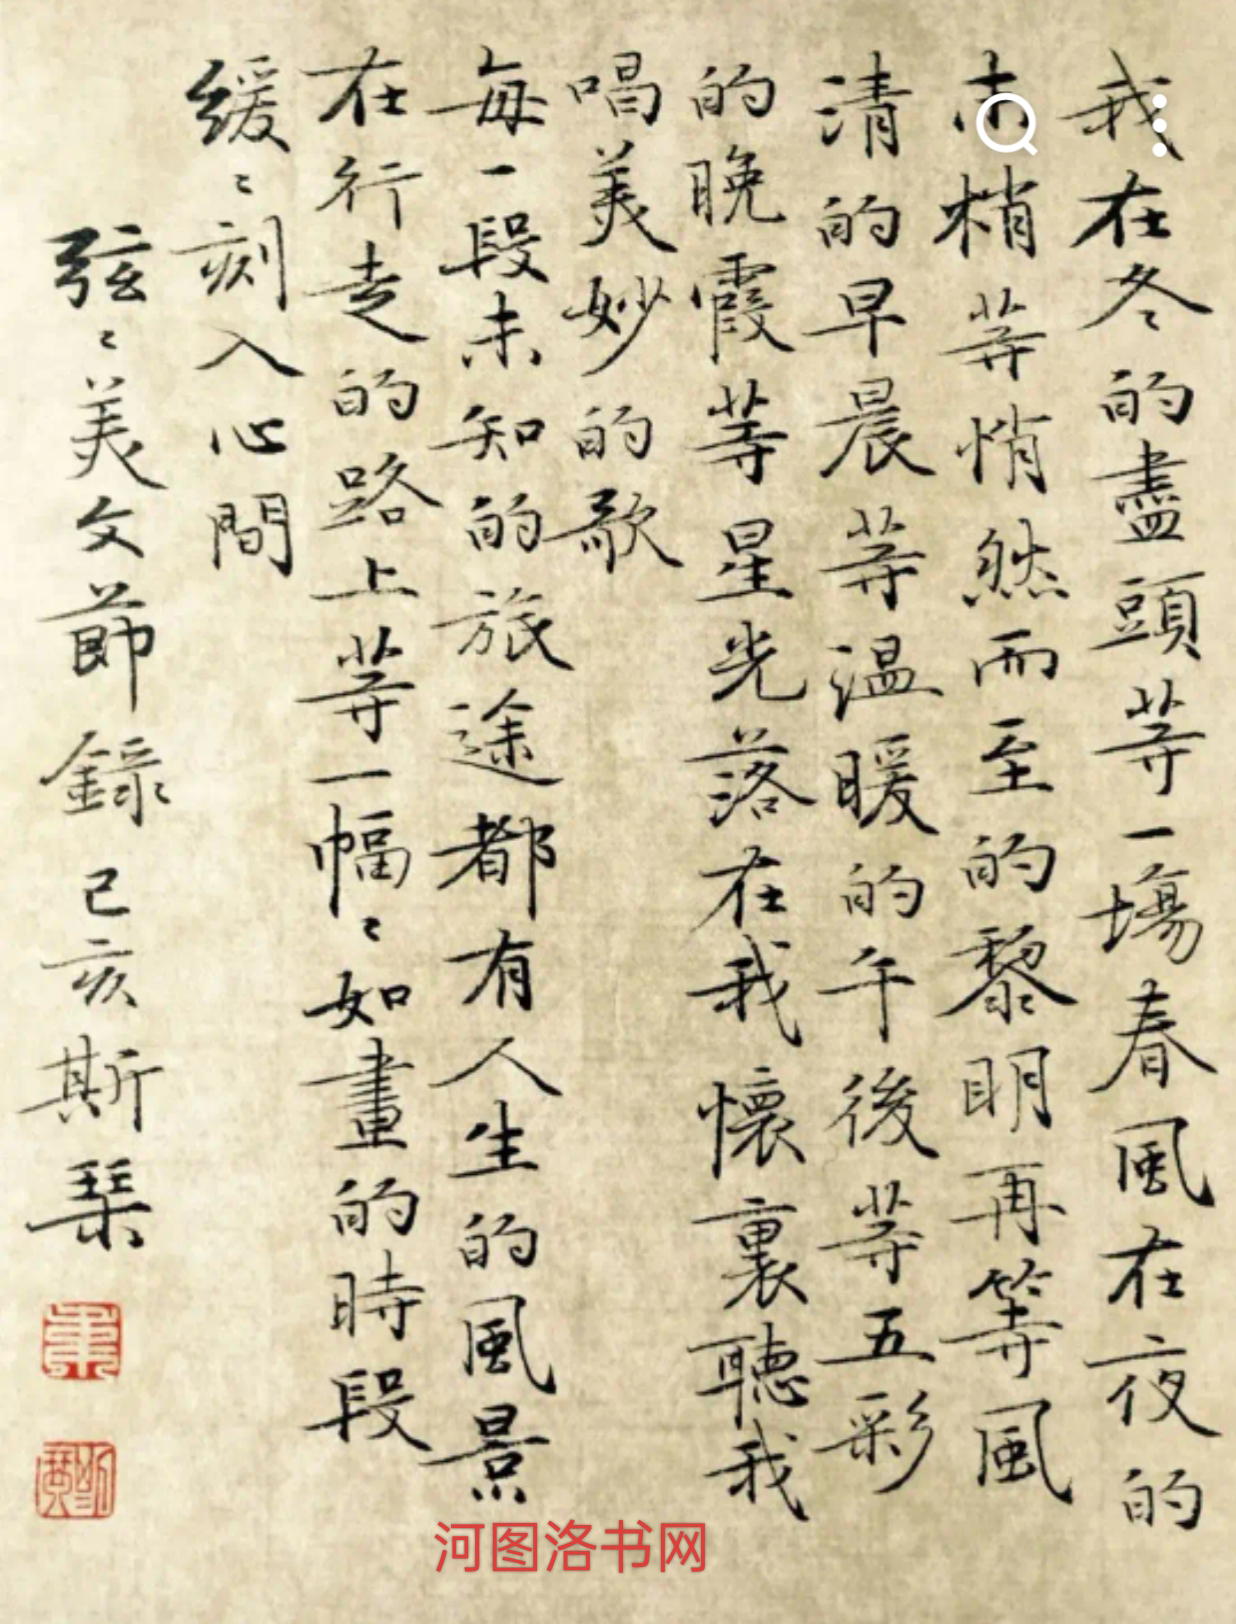 我在冬的盡頭等一塲春風在夜的
末梢等悄然而至的黎明再等風
清的早晨等温暖的午後等五彩
的晚霞等星光落在我懷裏聽我
唱美妙的歌
每一段未知的旅途都有人生的風景
在行走的路上等一幅〻如畫的時段
緩〻刻入心間
弦〻美文節錄己亥斯琹
河图洛书网